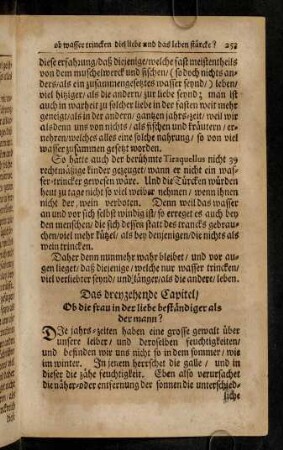 ob wasser trincken die liebe und das leben stärcke? 253
diese erfahrung/ daß diejenige/ welche fast meistentheils
von dem muschelwerck und fischen/ (so doch nichts an-
ders/ als ein zusammengesetztes wasser seynd/) leben/
viel hitziger/ als die andern zur liebe seynd; man ist
auch in warheit zu solcher liebe in der fasten weit mehr
geneigt/ als in der andern/ gantzen jahrs-zeit/ weil wir
als dann uns von nichts/ als fischen und kräutern/ er-
nehren/ welches alles eine solche nahrung/ so von viel
wasser zusammen gesetzt worden.
So hätte auch der berühmte Tiraquellus nicht 39
rechtmäßige kinder gezeuget/ wann er nicht ein was-
ser-trincker gewesen wäre. Und die Türcken würden
heut zu tage nicht so viel weiber nehmen/ wenn ihnen
nicht der wein verboten. Denn weil das wasser
an und vor sich selbst windig ist/ so erreget es auch bey
den menschen/ die sich dessen statt des trancks gebrau-
chen/ viel mehr kützel/ als bey denjenigen/ die nichts als
wein trincken.
Daher denn nunmehr wahr bleibet/ und vor au-
gen lieget/ daß diejenige/ welche nur wasser trincken/
viel verliebter seynd/ und länger/ als die andere/ leben.
Das dreyzehende Capitel/
Ob die frau in der liebe beständiger als
der mann?
DIe jahrs-zeiten haben eine grosse gewalt über
unsere leiber/ und derselben feuchtigkeiten/
und befinden wir uns nicht so in dem sommer/ wie
im winter. In jenem herrschet die galle/ und in
dieser die zähe feuchtigkeit. Eben also verursachet
die näher- oder entfernung der sonnen die unterschied-
liche